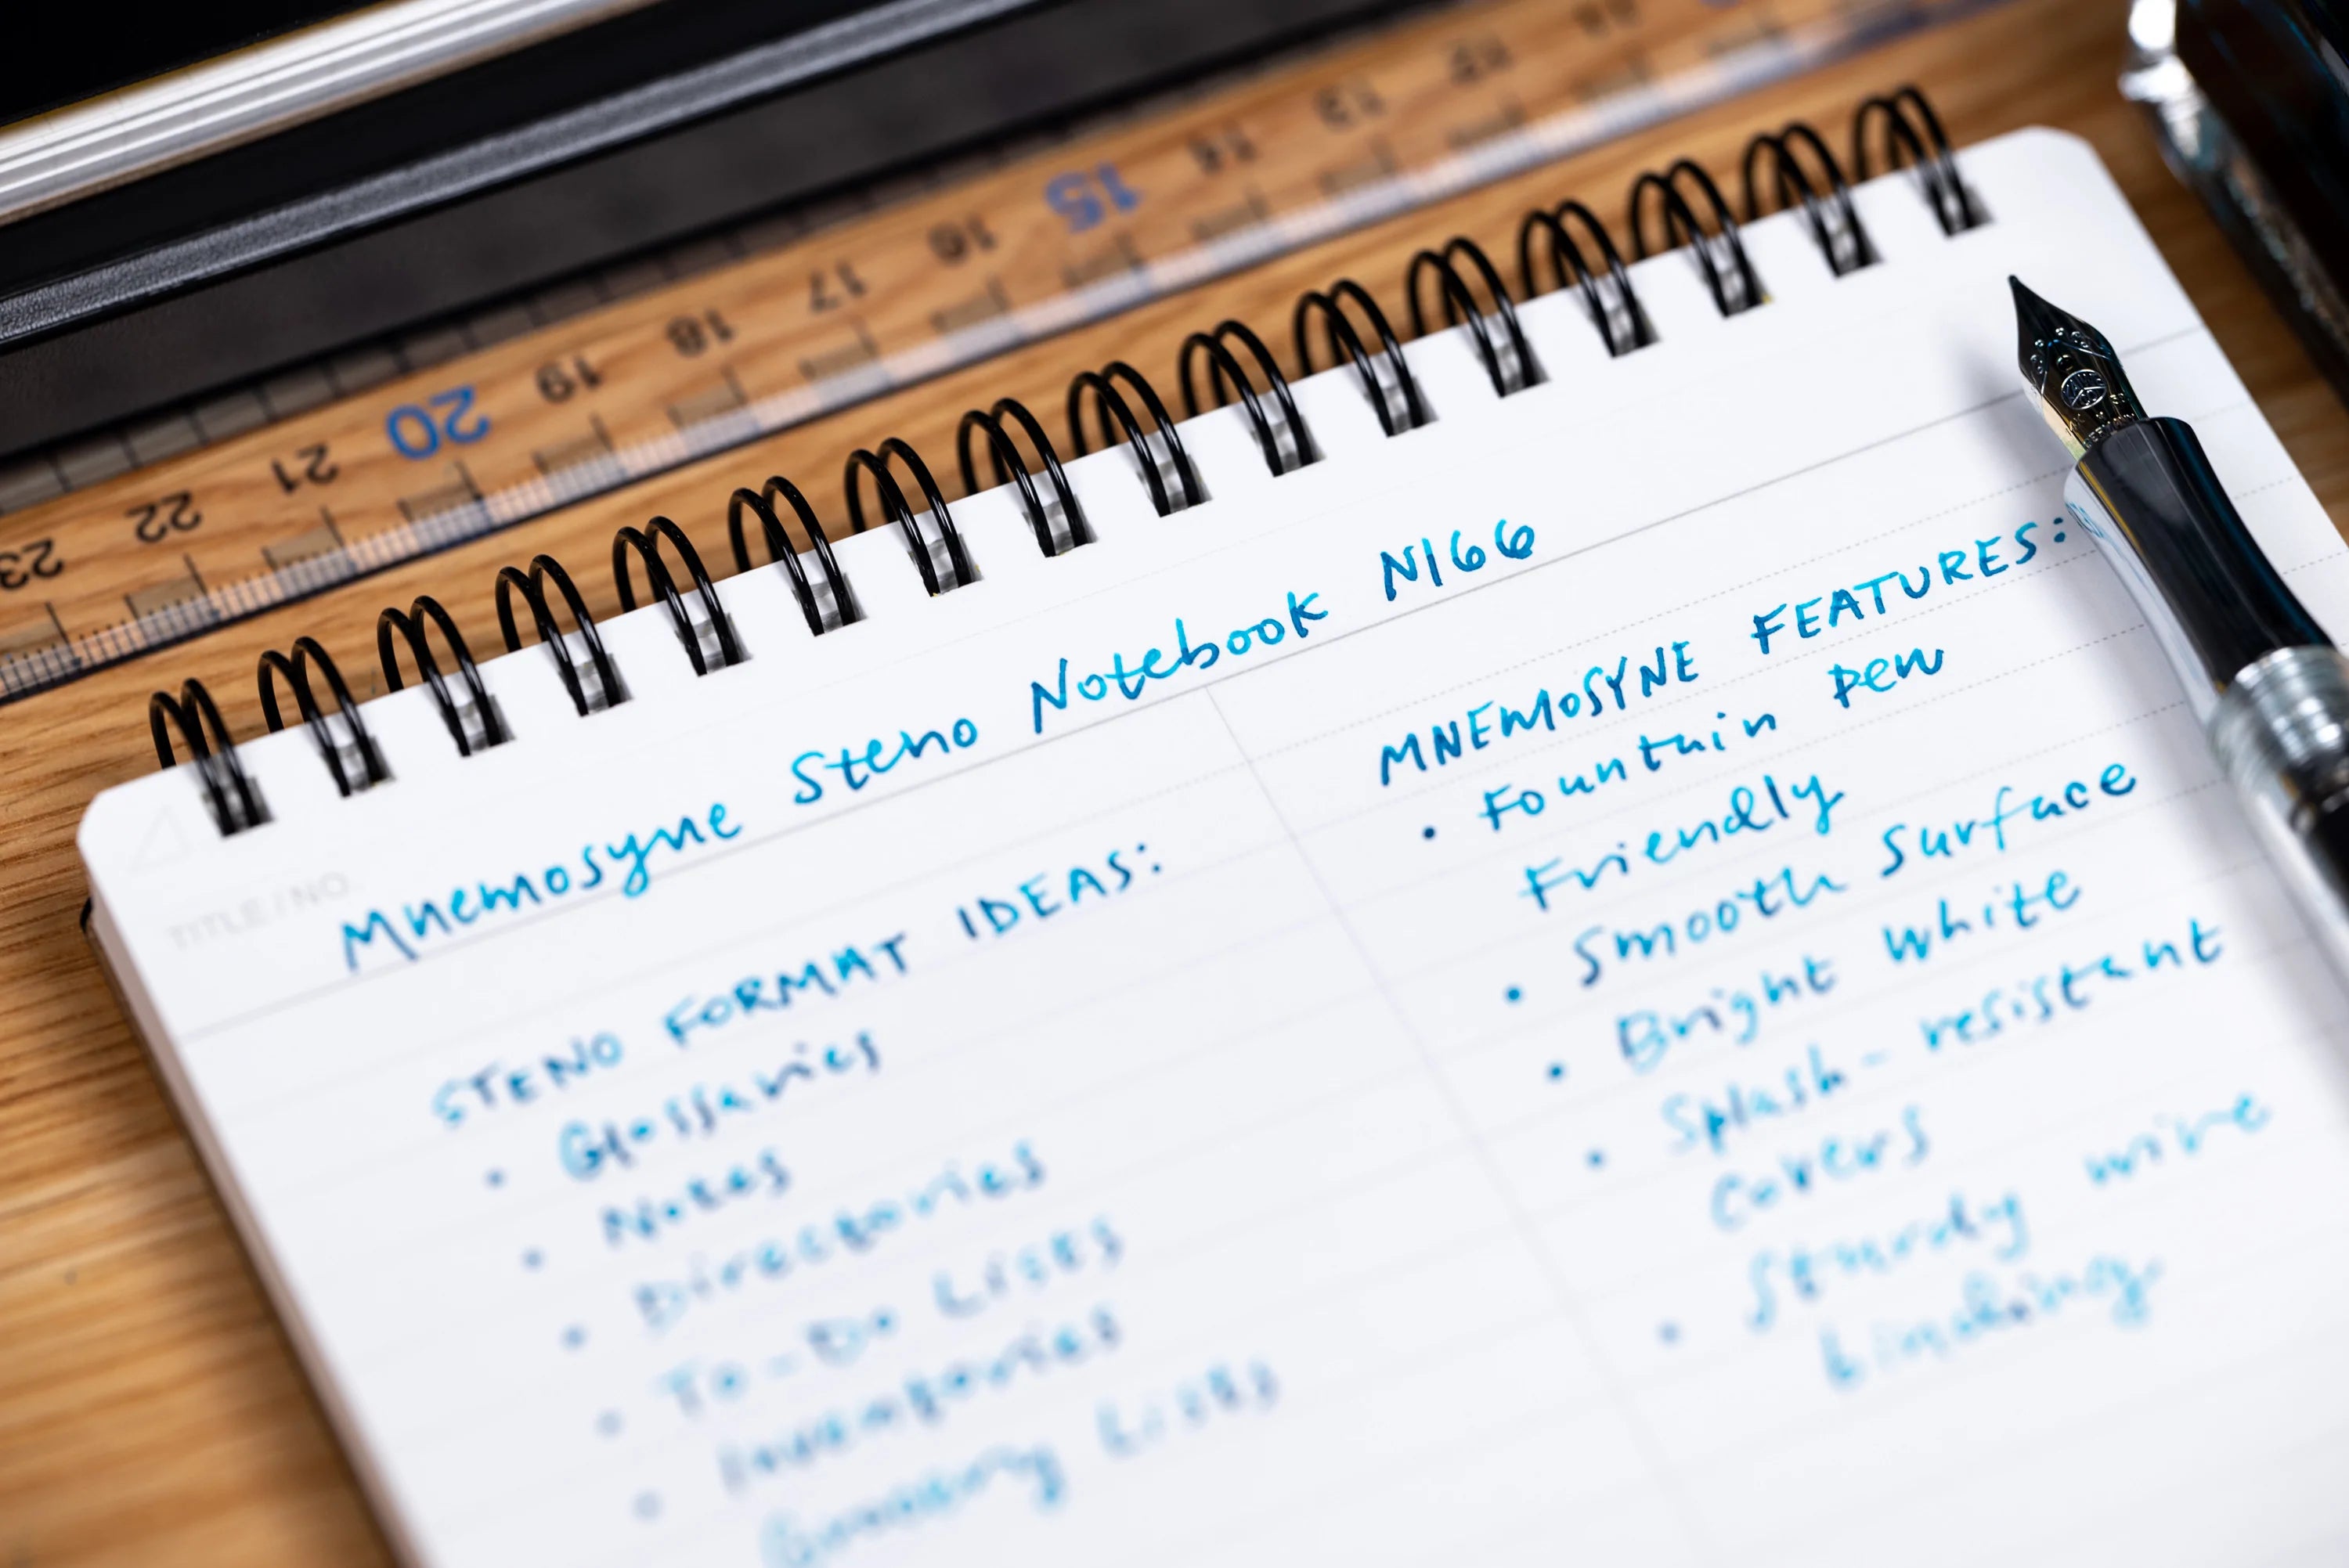 23 22 21 20 19 18 17 16 15 14 13 12
TITLE / NO.
Mnemosyne Steno Notebook N166
STENO FORMAT IDEAS:
• Glossaries
• Notes
• Directories
• To-Do Lists
• Inventories
• Grocery Lists
MNEMOSYNE FEATURES:
• Fountain pen
Friendly
• Smooth surface
• Bright white
• Splash-resistant
covers
• Sturdy wire
binding